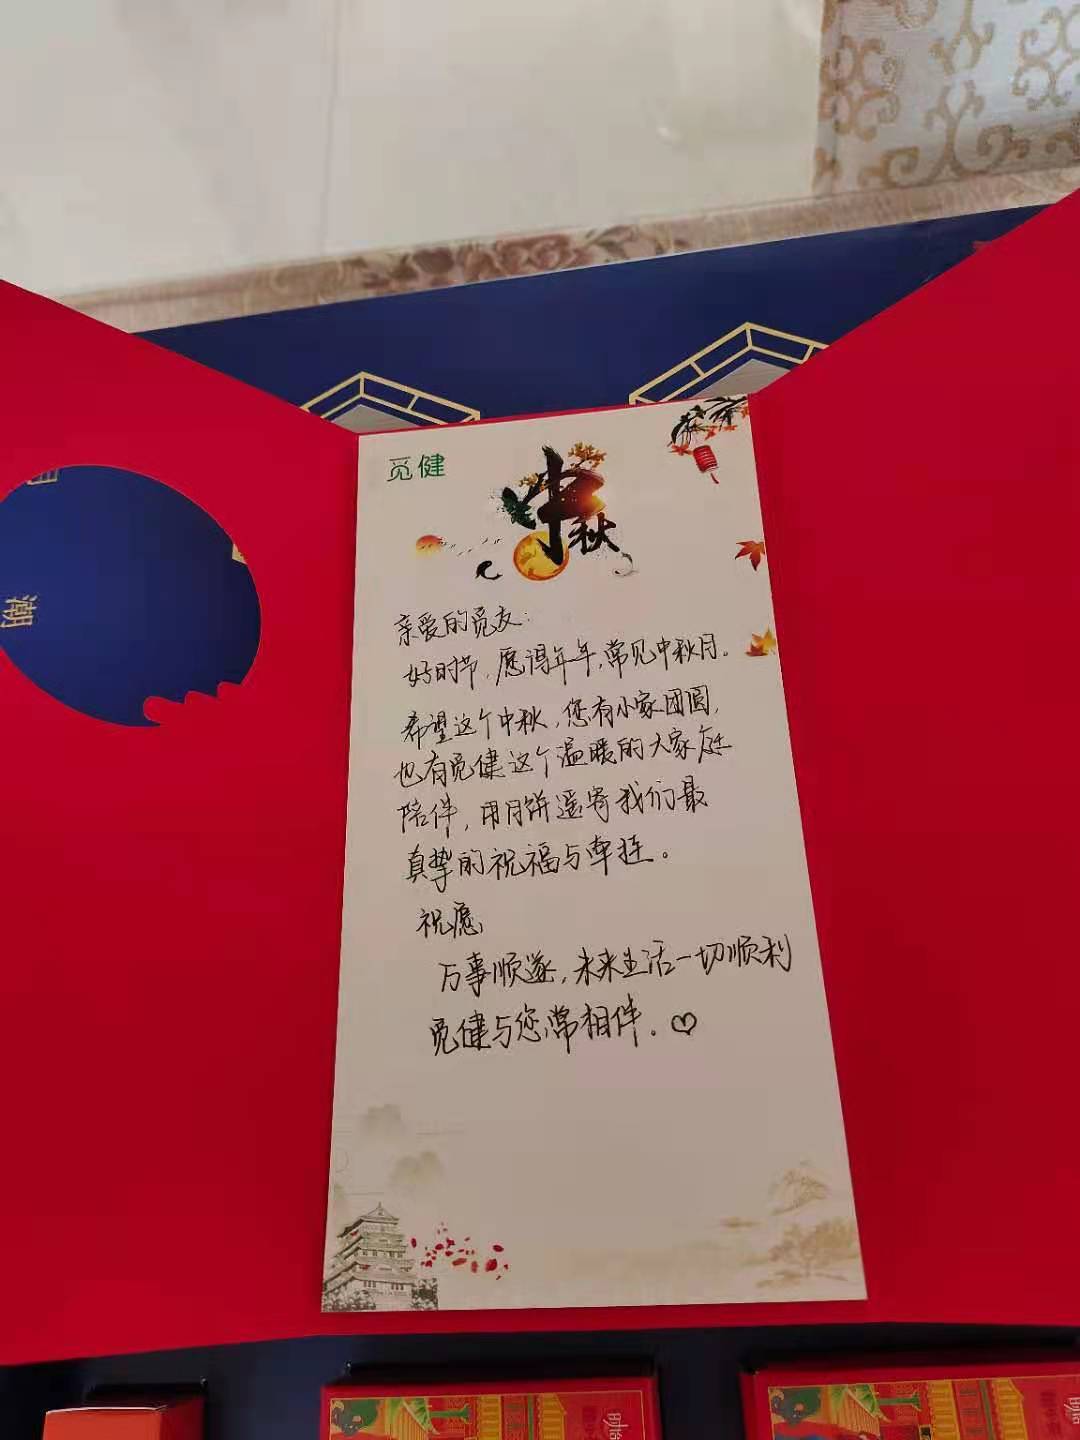 觅健
中秋
亲爱的觅友:
好时节,愿得年年,常见中秋月。
希望这个中秋,您有小家团圆,
也有觅健这个温暖的大家庭
陪伴,用月饼遥寄我们最
真挚的祝福与牵挂。
祝愿
万事顺遂,未来生活一切顺利
觅健与您常相伴。♡
潮